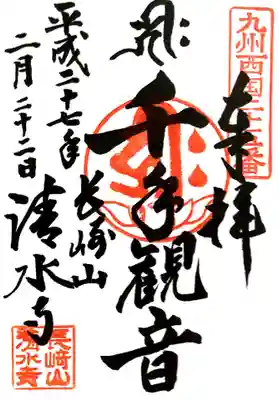 九州西国二十五番
奉拝
千手観音
長崎山
清水寺
平成二十七年
二月二十二日
長崎山
清水寺